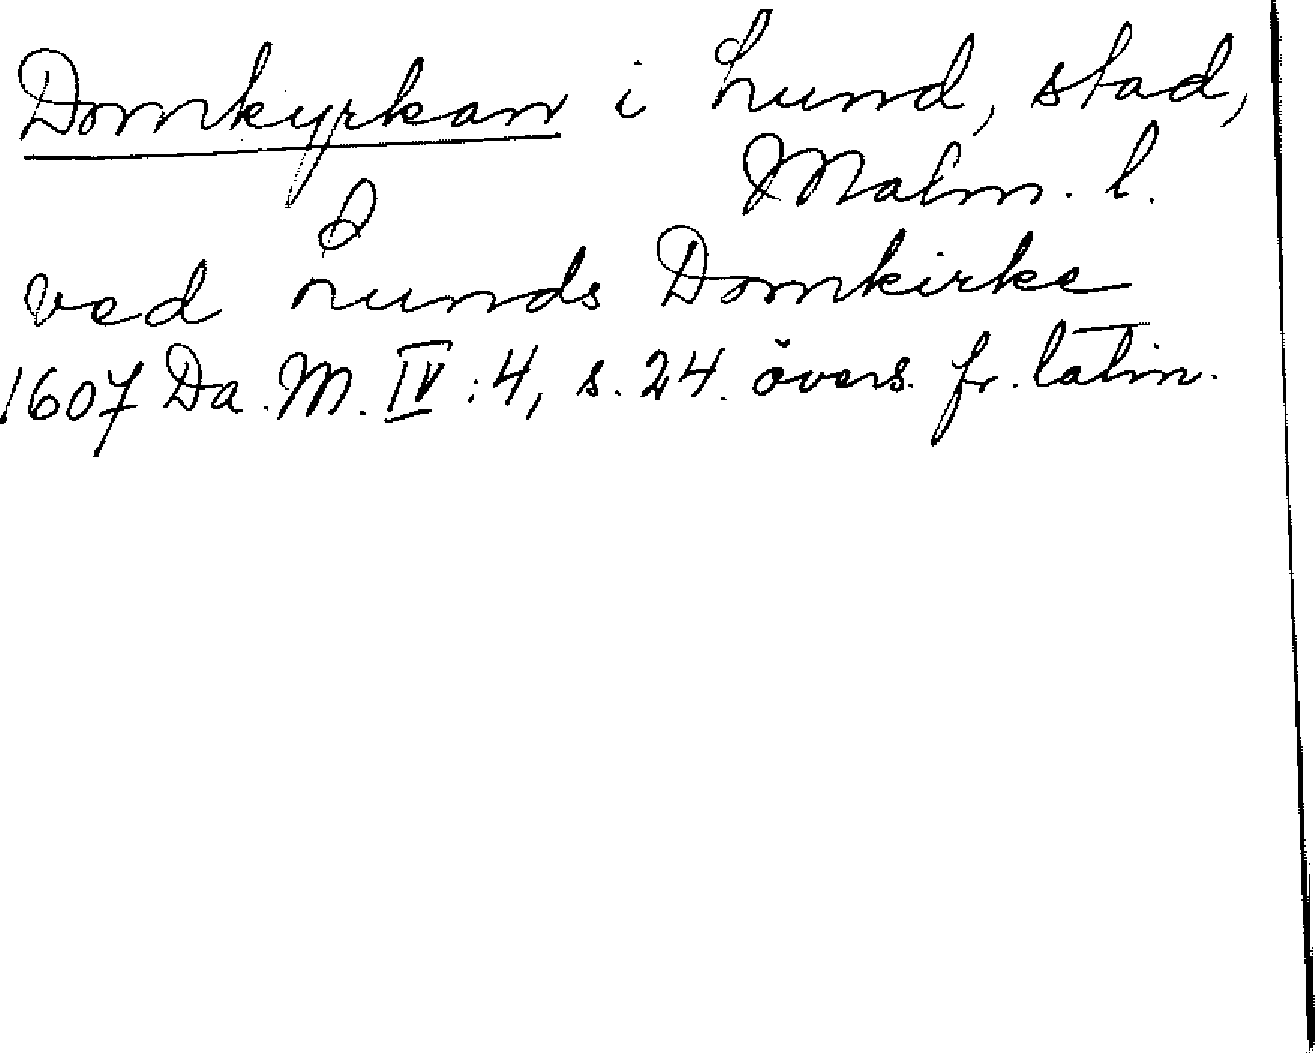 Domkyrkan i Lund, stad,
Malm. l.
ved Lunds Domkirke
1607 Da. M. IV: 4, s. 24. övers. fr. latin.